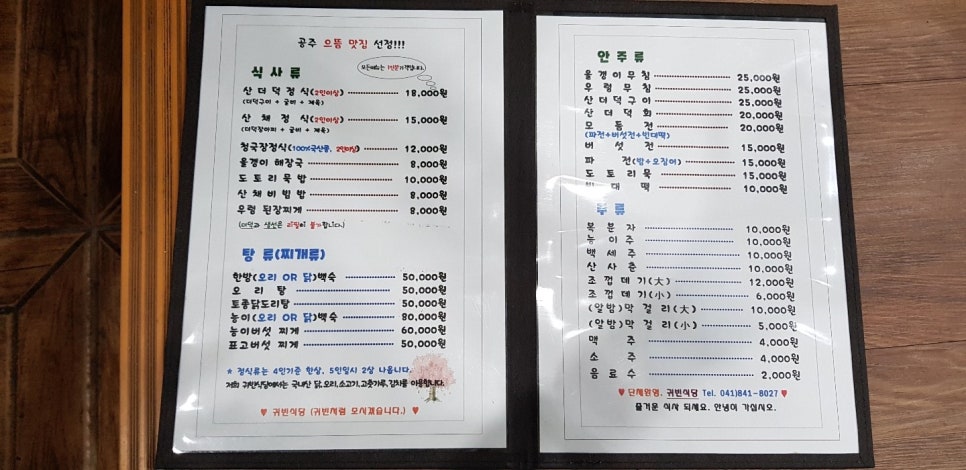 공주 으뜸 맛집 선정!!!
모든메뉴는 1인분가격입니다.
식 사 류
산 더 덕 정 식(2인이상) 18,000원
(더덕구이 + 굴비 + 제육)
산 채 정 식(2인이상) 15,000원
(더덕장아찌 + 굴비 + 제육)
청국장정식(100%국산콩, 2인이상) 12,000원
올갱이 해장국 8,000원
도 토 리 묵 밥 10,000원
산 채 비 빔 밥 8,000원
우렁 된장찌게 8,000원
(더덕과 생선은 리필이 불가합니다.)
탕 류(찌개류)
한방(오리 OR 닭)백숙 50,000원
오 리 탕 50,000원
토종닭도리탕 50,000원
능이(오리 OR 닭)백숙 80,000원
능이버섯 찌게 60,000원
표고버섯 찌게 50,000원
* 정식류는 4인기준 한상, 5인일시 2상 나옵니다.
저희 귀빈식당에서는 국내산 닭,오리,소고기,고춧가루,김치를 이용합니다.
♥ 귀빈식당 (귀빈처럼 모시겠습니다.) ♥
안 주 류
올 갱 이 무 침 25,000원
우 렁 무 침 25,000원
산 더 덕 구 이 25,000원
산 더 덕 회 20,000원
모 듬 전 20,000원
(파전+버섯전+빈대떡)
버 섯 전 15,000원
파 전(밤+오징어) 15,000원
도 토 리 묵 15,000원
빈 대 떡 10,000원
주 류
복 분 자 10,000원
능 이 주 10,000원
백 세 주 10,000원
산 사 춘 10,000원
조 껍 데 기(大) 12,000원
조 껍 데 기(小) 6,000원
(알밤)막 걸 리(大) 10,000원
(알밤)막 걸 리(小) 5,000원
맥 주 4,000원
소 주 4,000원
음 료 수 2,000원
♥ 단체환영, 귀빈식당 Tel. 041)841-8027 ♥
즐거운 식사 되세요. 안녕히 가십시오.